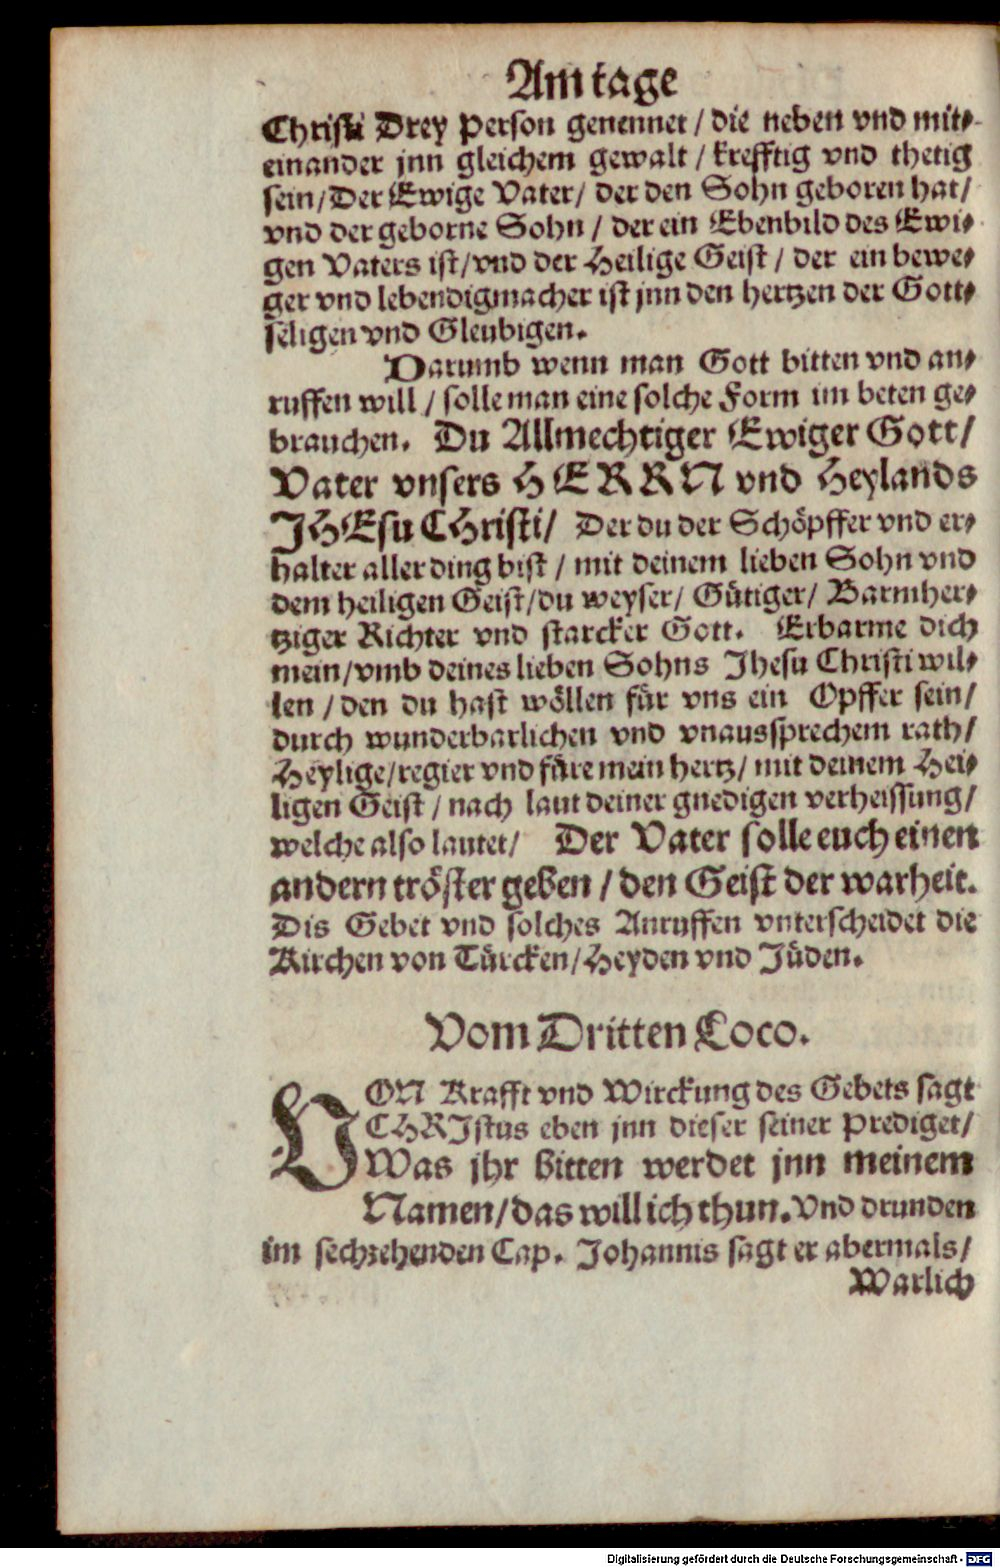 Am tage
Christi Drey Person genennet / die neben vnd mit-
einander jnn gleichem gewalt / krefftig vnd thetig
sein / Der Ewige Vater / der den Sohn geboren hat /
vnd der geborne Sohn / der ein Ebenbild des Ewi-
gen Vaters ist / vnd der Heilige Geist / der ein bewe-
ger vnd lebendigmacher ist jnn den hertzen der Gott-
seligen vnd Gleubigen.
Darumb wenn man Gott bitten vnd an-
ruffen will / solle man eine solche Form im beten ge-
brauchen. Du Allmechtiger Ewiger Gott /
Vater vnsers HERRN vnd Heylands
JHEsu CHristi / Der du der Schöpffer vnd er-
halter aller ding bist / mit deinem lieben Sohn vnd
dem heiligen Geist / du weyser / Gütiger / Barmher-
tziger Richter vnd starcker Gott. Erbarme dich
mein / vmb deines lieben Sohns Jhesu Christi wil-
len / den du hast wöllen für vns ein Opffer sein /
durch wunderbarlichen vnd vnaussprechem rath /
Heylige / regier vnd füre mein hertz / mit deinem Hei-
ligen Geist / nach laut deiner gnedigen verheissung /
welche also lautet / Der Vater solle euch einen
andern tröster geben / den Geist der warheit.
Dis Gebet vnd solches Anruffen vnterscheidet die
Kirchen von Türcken / Heyden vnd Jüden.
Vom Dritten Loco.
VON Krafft vnd Wirckung des Gebets sagt
CHRJstus eben jnn dieser seiner Prediget /
Was jhr bitten werdet jnn meinem
Namen / das will ich thun. Vnd drunden
im sechzehenden Cap. Johannis sagt er abermals /
Warlich
Digitalisierung gefördert durch die Deutsche Forschungsgemeinschaft - DFG